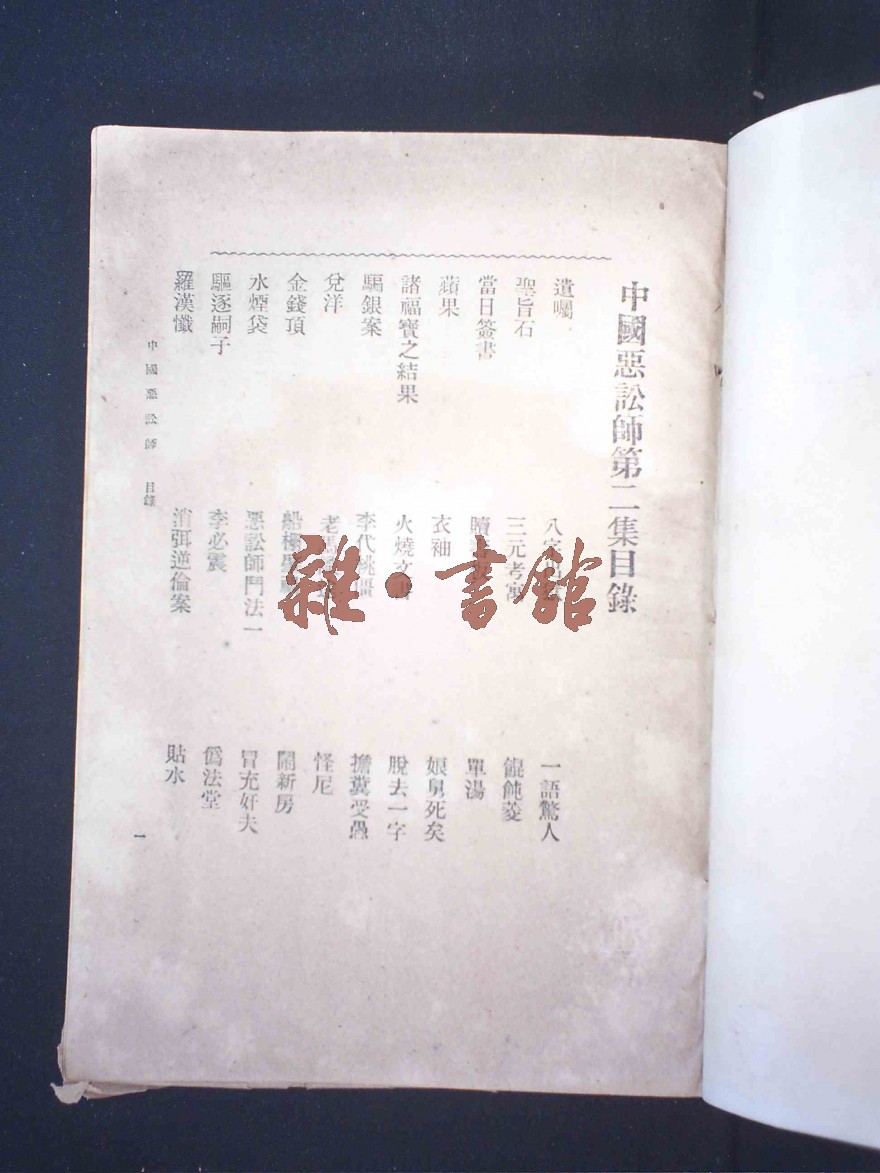 中國惡訟師第二集目錄
遺囑
聖旨石
當日簽書
蘋果
諸福寶之結果
騙銀案
兌洋
金錢頂
水煙袋
驅逐嗣子
羅漢懺
八字
三元考寓
贖
衣袖
火燒文書
李代桃僵
老
船
惡訟師鬥法一
李必震
消弭逆倫案
一語驚人
餛飩菱
單湯
娘舅死矣
脫去一字
擔糞受愚
怪尼
鬧新房
冒充奸夫
偽法堂
貼水
中國惡訟師 目錄
一
雜·書館